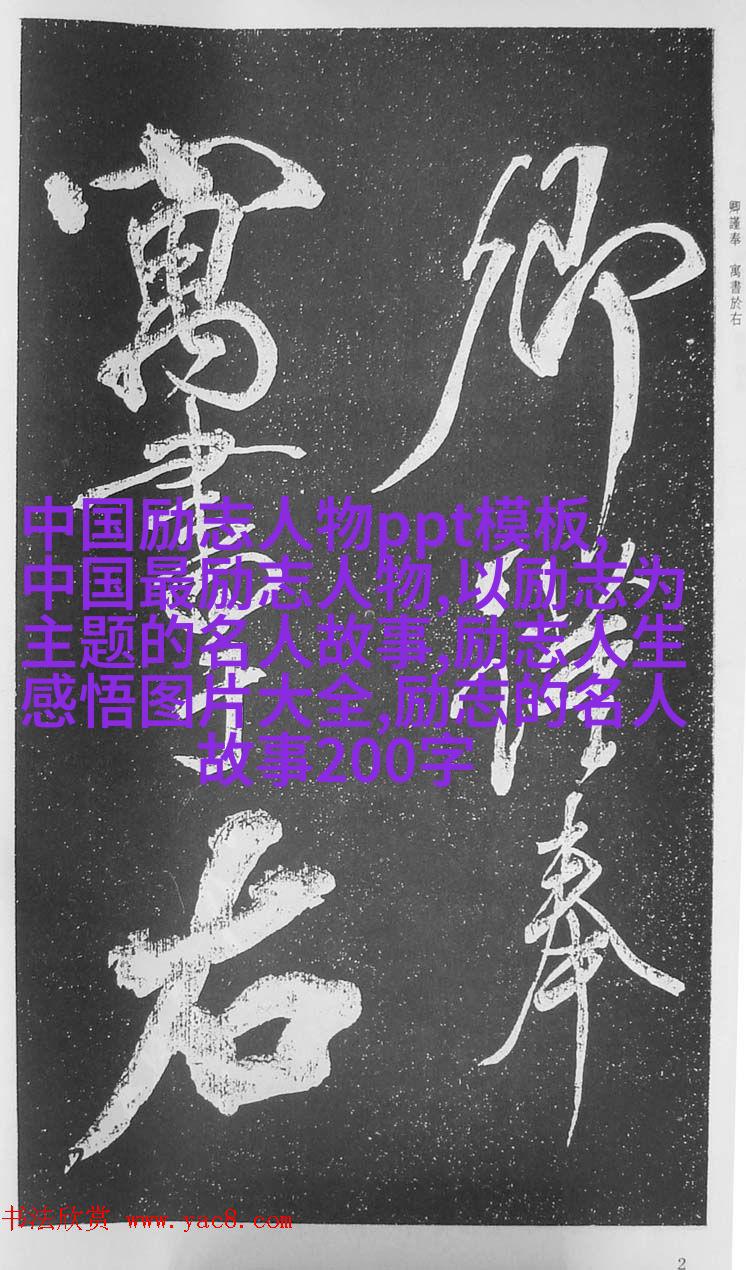 卿謹奉
寓書於右
卿謹奉 寓書於右
中国励志人物ppt模板,
中国最励志人物,以励志为
主题的名人故事,励志人生
感悟图片大全,励志的名人
故事200字
书法欣赏 www.yac8.com
2